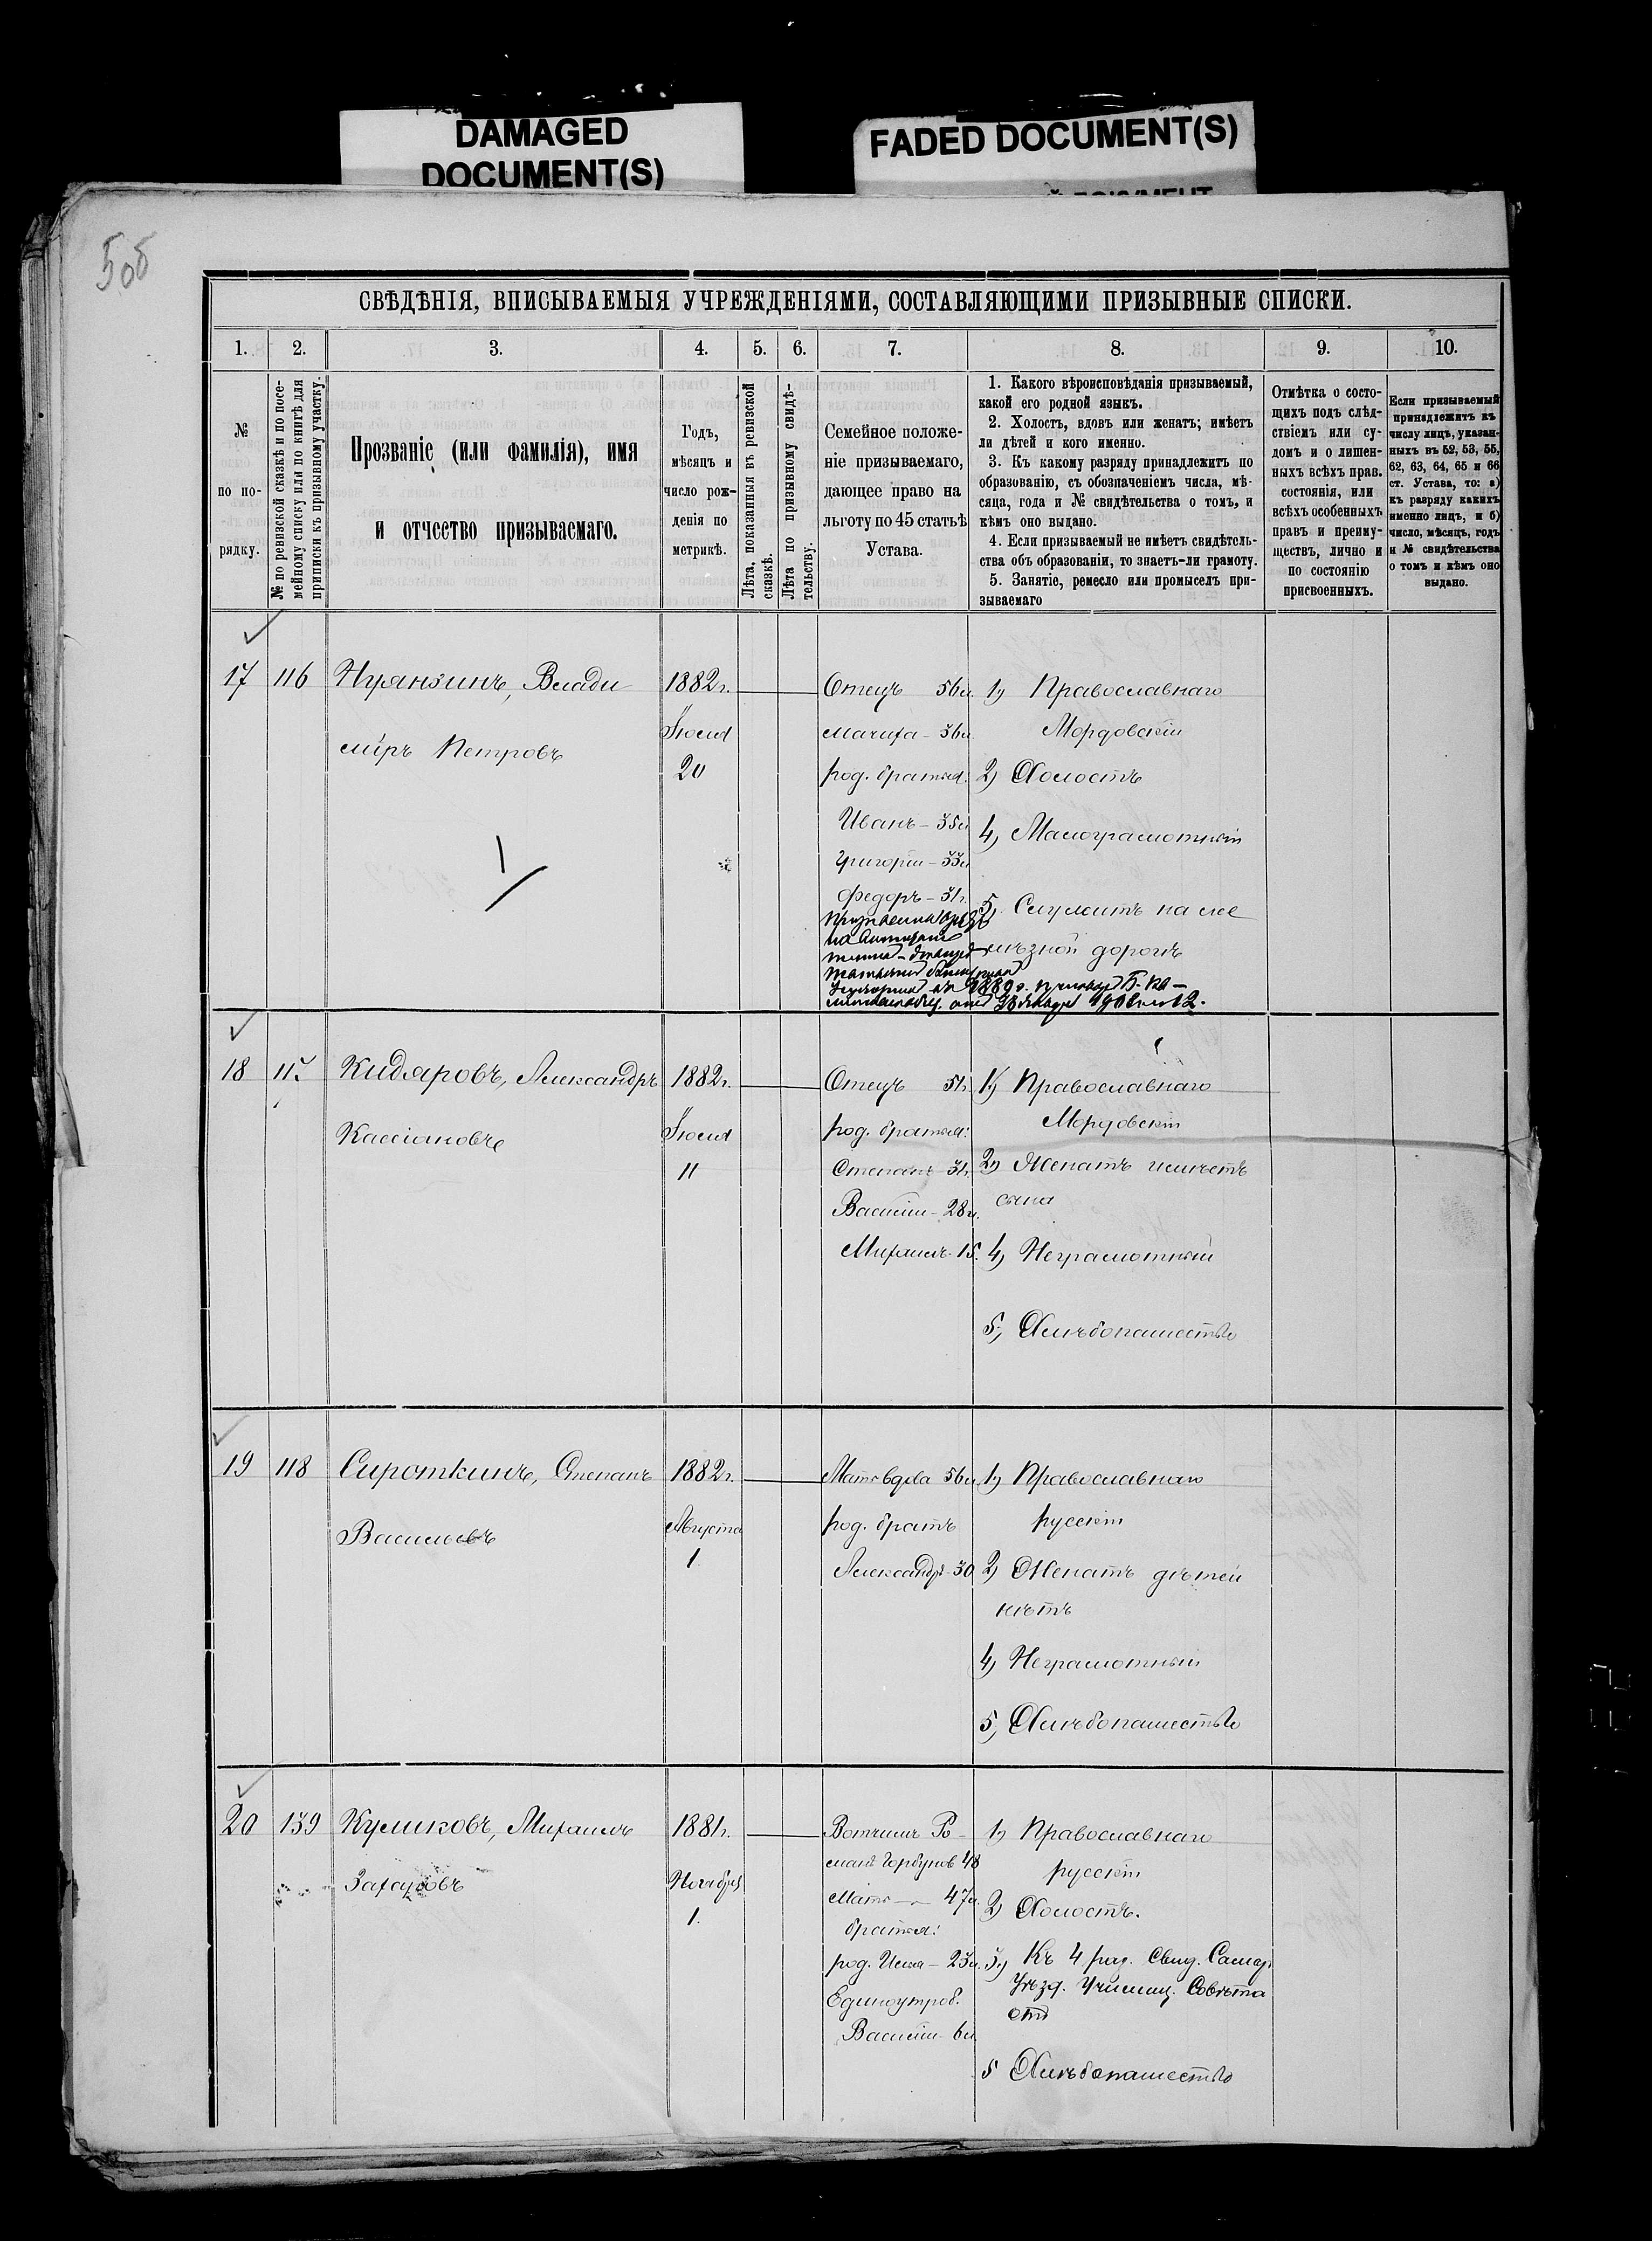 DAMAGED
DOCUMENT(S)
FADED DOCUMENT(S)
508
СВѢДѢНІЯ, ВПИСЫВАЕМЫЯ УЧРЕЖДЕНІЯМИ, СОСТАВЛЯЮЩИМИ ПРИЗЫВНЫЕ СПИСКИ.
1. 2. 3. 4. 5. 6. 7. 8. 9. 10.
№
по по-
рядку.
№ по ревизской сказкѣ и по посе-
мейному списку или по книгѣ для
приписки къ призывному участку.
Прозваніе (или фамилія), имя
и отчество призываемаго.
Годъ,
мѣсяцъ и
число рож-
денія по
метрикѣ.
Лѣта, показанныя въ ревизской
сказкѣ.
Лѣта по призывному свидѣ-
тельству.
Семейное положе-
ніе призываемаго,
дающее право на
льготу по 45 статьѣ
Устава.
1. Какого вѣроисповѣданія призываемый,
какой его родной языкъ.
2. Холостъ, вдовъ или женатъ; имѣетъ
ли дѣтей и кого именно.
3. Къ какому разряду принадлежитъ по
образованію, съ обозначеніемъ числа, мѣ-
сяца, года и № свидѣтельства о томъ, и
кѣмъ оно выдано.
4. Если призываемый не имѣетъ свидѣтель-
ства объ образованіи, то знаетъ-ли грамоту.
5. Занятіе, ремесло или промыселъ при-
зываемаго
Отмѣтка о состо-
щихъ подъ слѣд-
ствіемъ или су-
домъ и о лишен-
ныхъ всѣхъ прав.
состоянія, или
всѣхъ особенныхъ
правъ и преиму-
ществъ, лично и
по состоянію
присвоенныхъ.
Если призываемый
принадлежитъ къ
числу лицъ, указан-
ныхъ въ 52, 53, 55,
62, 63, 64, 65 и 66
ст. Устава, то: а)
къ разряду какихъ
именно лицъ, и б)
число, мѣсяцъ, годъ
и № свидѣтельства
о томъ и кѣмъ оно
выдано.
17 116 Нуянзинъ, Влади
міръ Петровъ
1882 г.
Іюля
20
Отецъ 56 л.
мачиха - 36 л.
род. братья:
Иванъ - 35 л.
Григорій - 33 л.
Федоръ - 31 г.
1) Православнаго
Мордовскій
2) Холостъ
4) Малограмотный
5) Служитъ на же
лѣзной дорогѣ
18 Кидяровъ, Александръ
Кассіановъ
1882 г.
Іюля
11
Отецъ 51 г.
род. братья:
Степанъ 31 г.
Василій - 28 л.
Михаилъ - 15.
1) Православнаго
Мордовскій
2) Женатъ имѣетъ
сына
4) Неграмотный
5) Хлѣбопашество
19 118 Сироткинъ, Степанъ
Васильевъ
1882 г.
Августа
1.
Мать вдова 56 л.
род. братъ
Александръ 30
1) Православнаго
русскій
2) Женатъ дѣтей
нѣтъ
4) Неграмотный
5) Хлѣбопашество
20 139 Куликовъ, Михаилъ
Захаровъ
1881 г.
Ноября
1.
Вотчимъ Ро-
манъ Горбунов 48
Мать — 47 л.
братья:
род. Илья - 23 л.
Единоутроб.
Василій 6 л.
1) Православнаго
русскій
2) Холостъ.
3) Къ 4 раз. Свид. Самар.
Уѣзд. Училищ. Совѣта
отъ
5 Хлѣбопашество